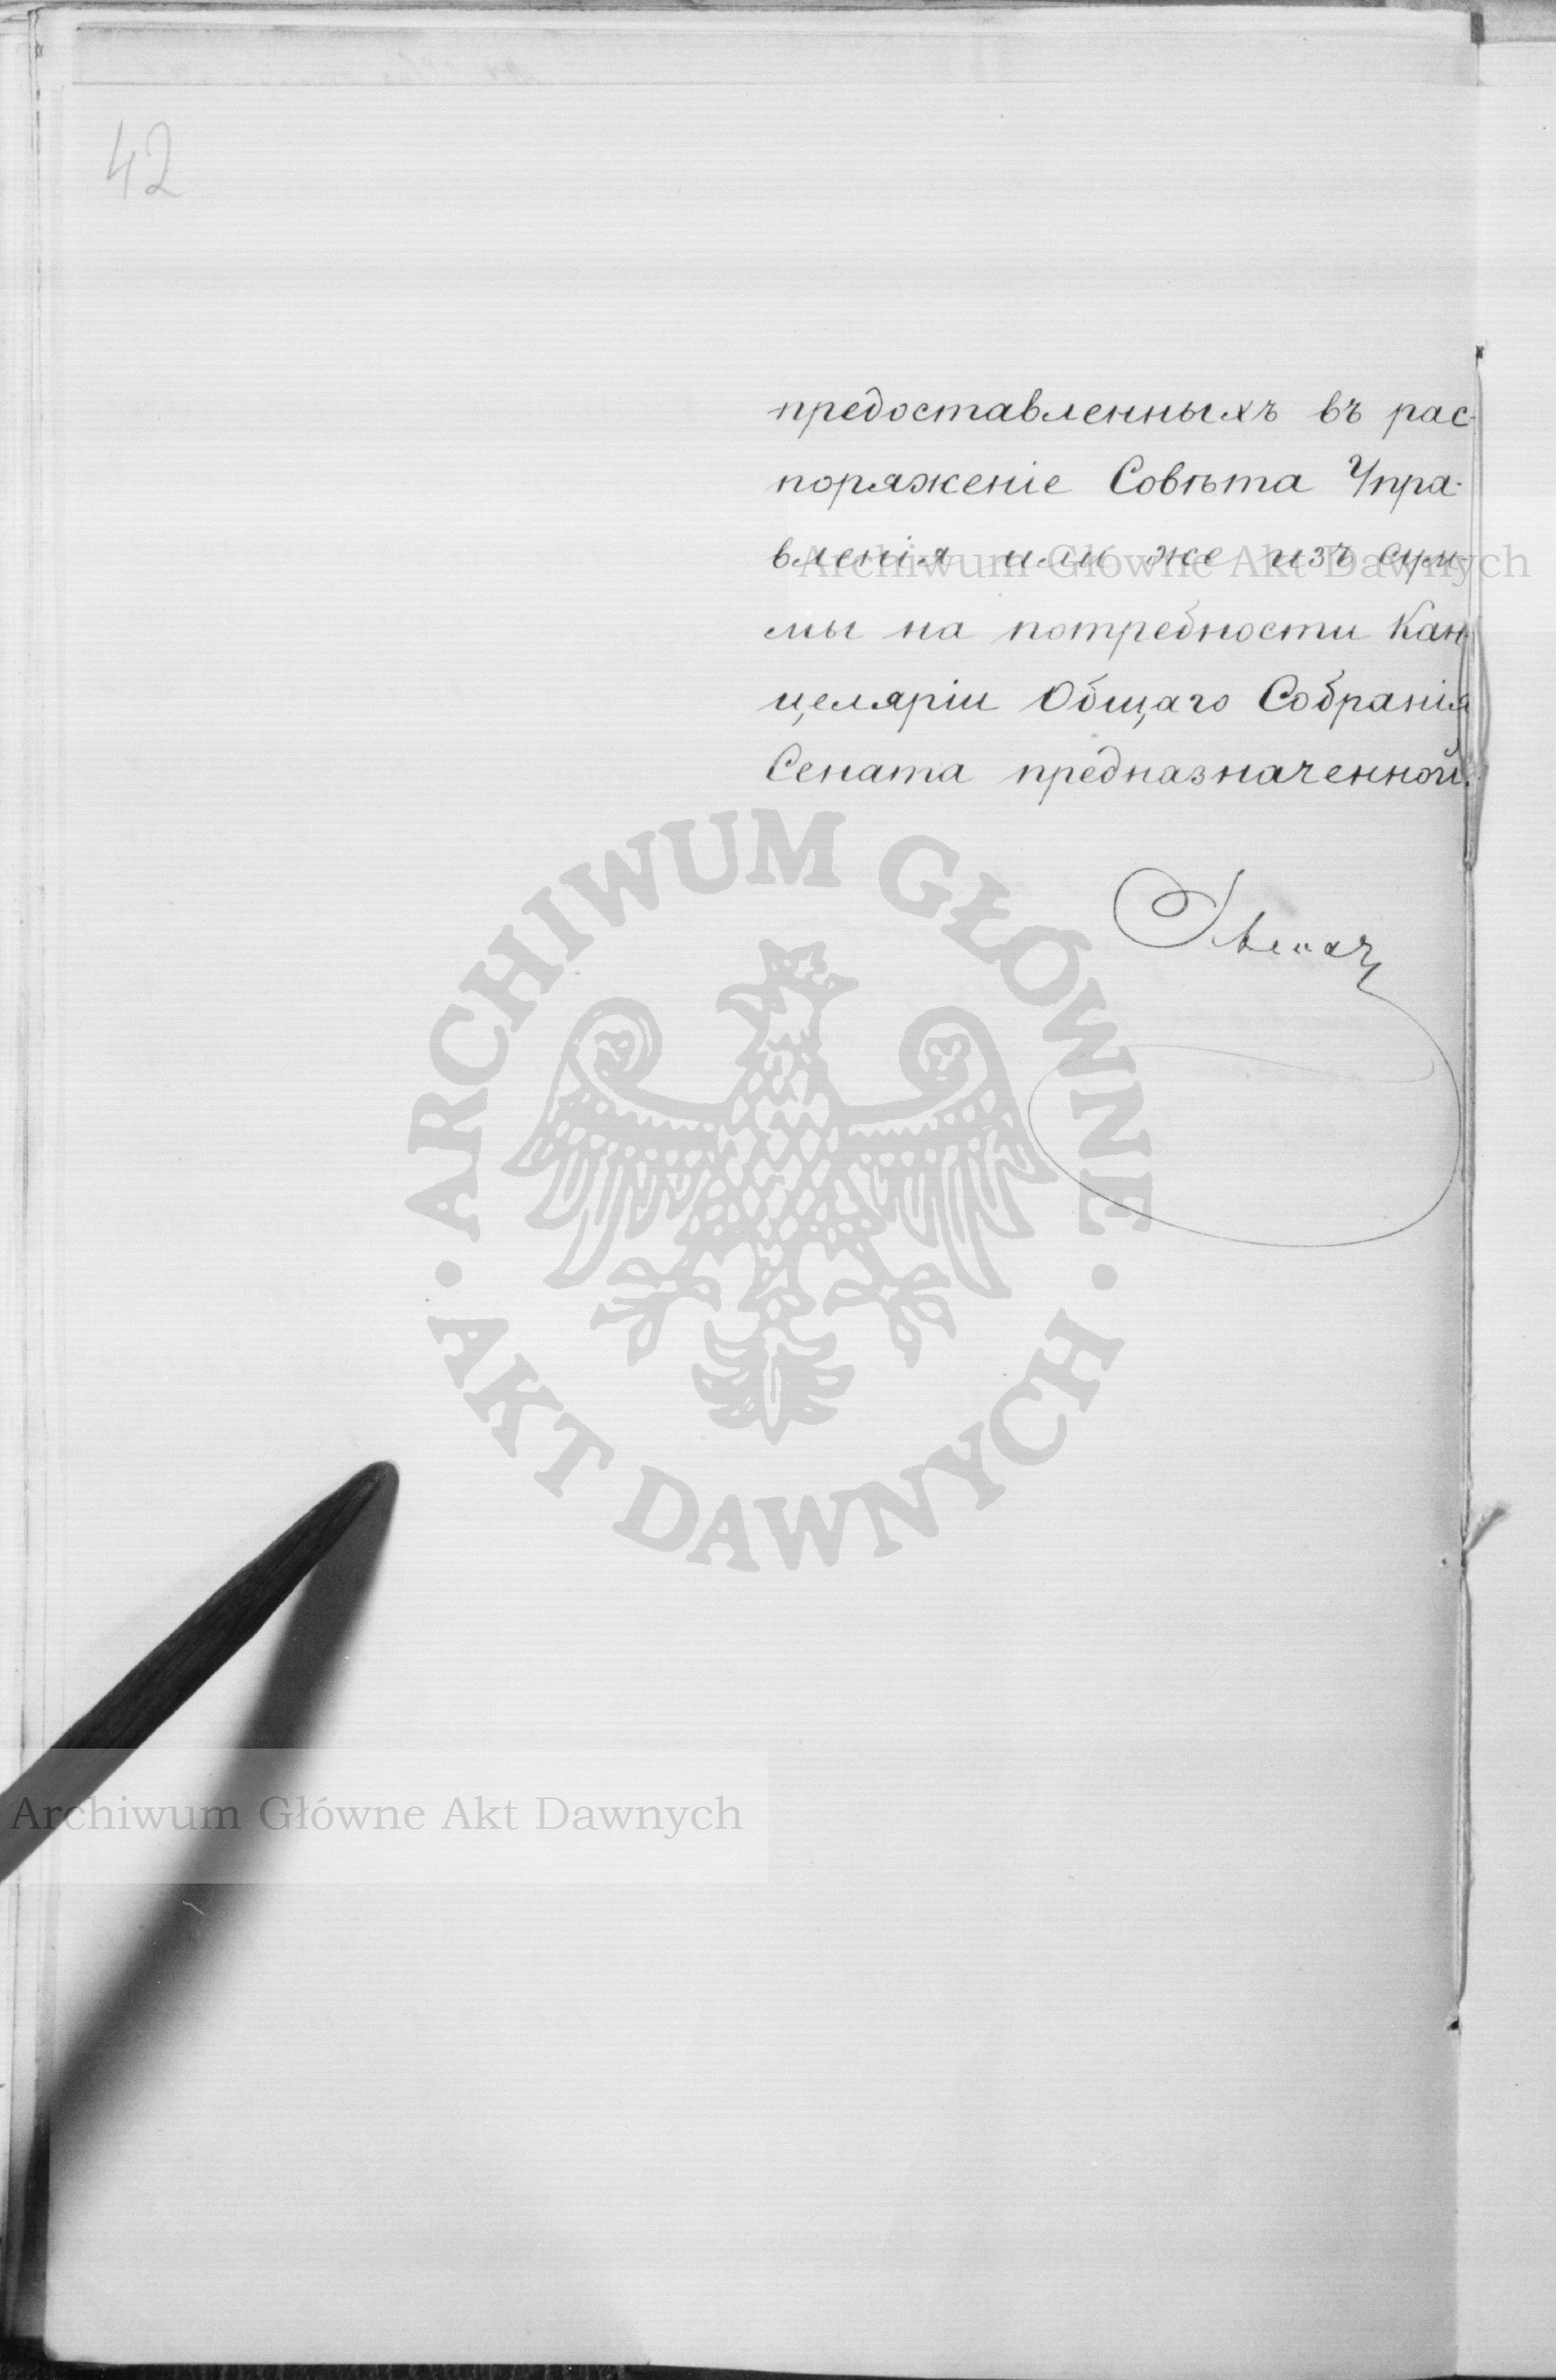 42
предоставленныхъ въ рас-
поряженіе Совѣта Упра-
вленія или же изъ сум-
мы на потребности Кан-
целяріи Общаго Собранія
Сената предназначенной.
Archiwum Główne Akt Dawnych
ARCHIWUM GŁÓWNE
AKT DAWNYCH
Archiwum Główne Akt Dawnych